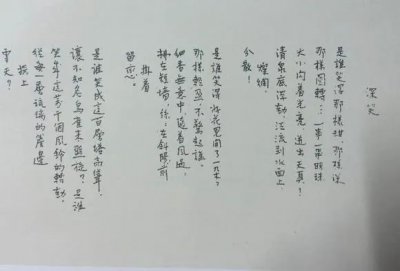 深笑
是誰笑得那樣甜,那樣深
那樣圓轉?一串一串明珠
大小閃着光亮,迸出天真!
清泉底浮動,泛流到水面上,
燦爛,
分散!
是誰笑得好花兒開了一朵?
那樣輕盈,不驚起誰。
細香無意中,隨着風過,
拂在短牆,絲絲在斜陽前
掛着
留戀。
是誰笑成這百層塔高聳,
讓不知名鳥雀來盤旋?是誰
笑成這萬千個風鈴的轉動,
從每一層琉璃的簷邊
搖上
雲天?